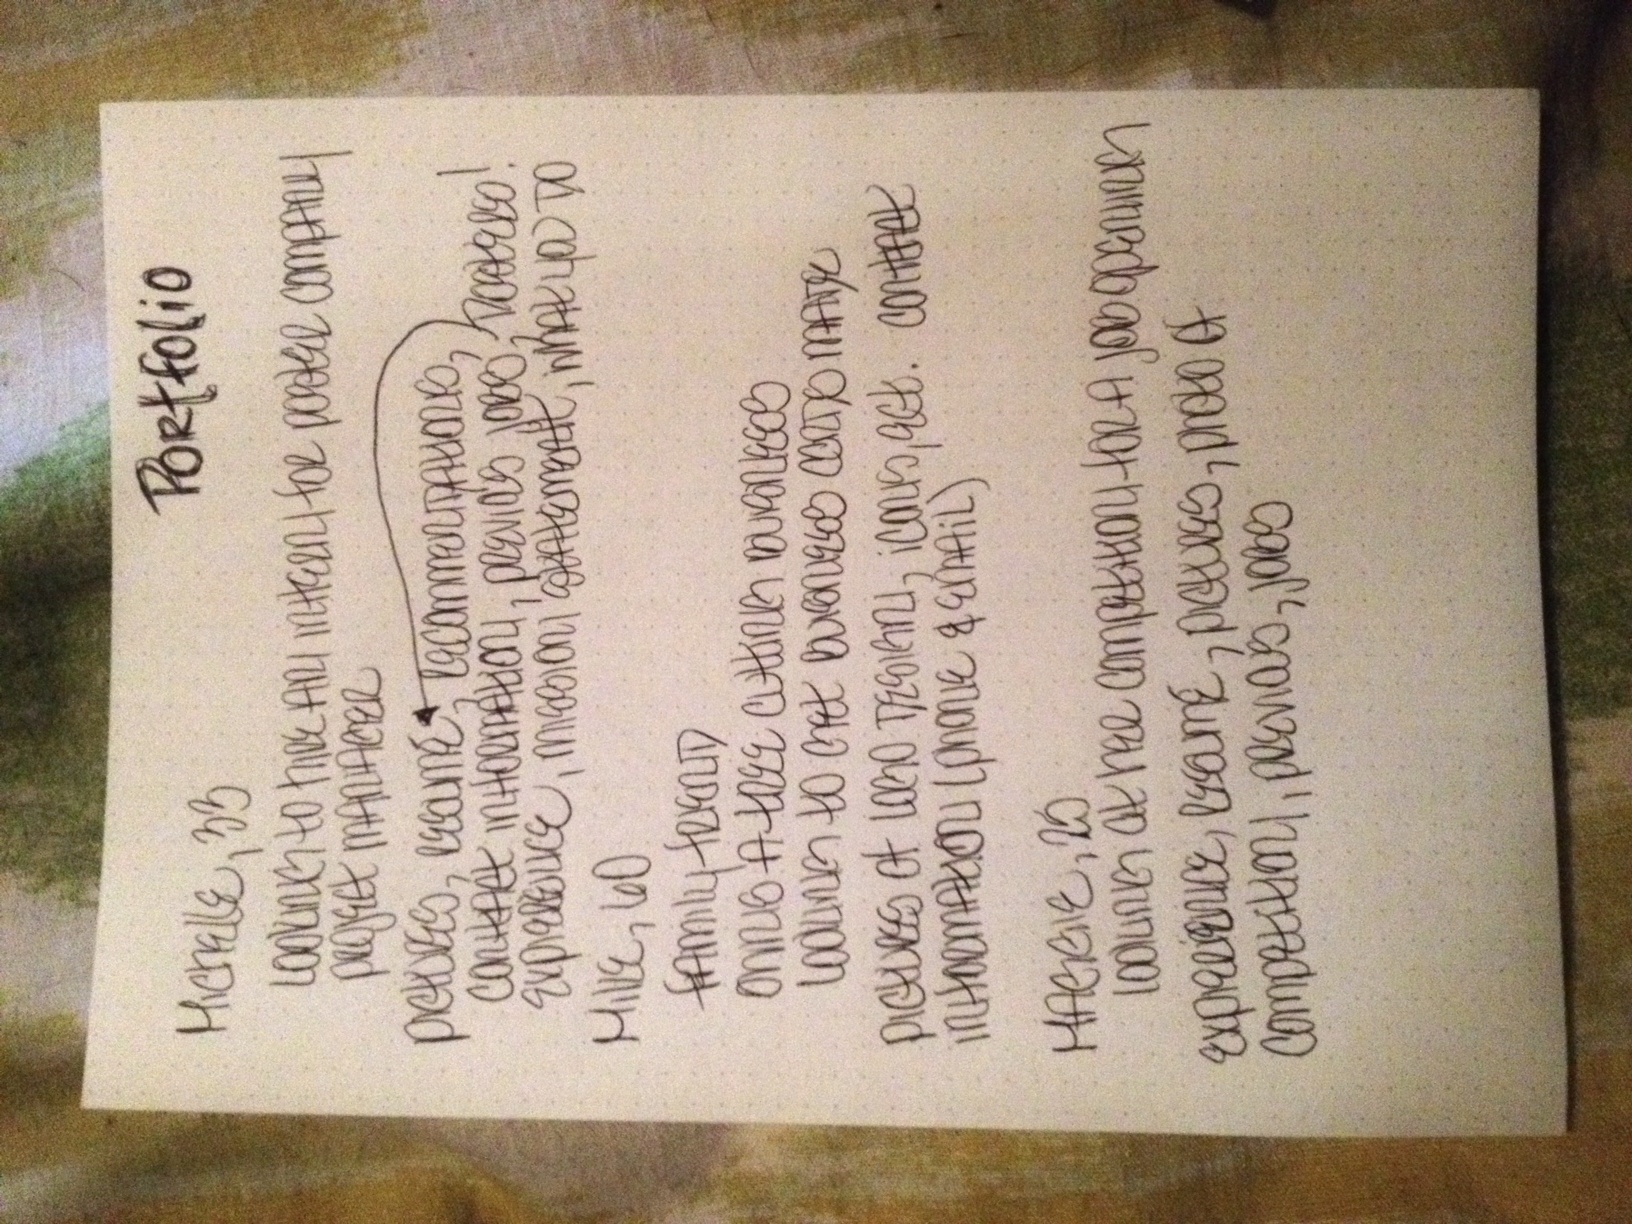 Portfolio
Michelle, 33
Looking to hire an intern for poster company
project manager
pictures, resumé, recommendations,
contact information, previous jobs, posters!
expierence, mission statement, what you do
Mike, 60
family friend
owns a tree cutting buisness
looking to get buisness cards made
pictures of logo design, icons, ect. contact
information (phone & email)
Maggie, 25
looking at her competition for a job opening
expierience, resumé, pictures, photo of
competition, previous, jobs